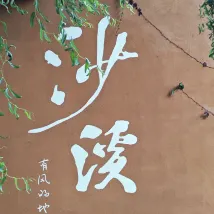 沙溪
有风的地